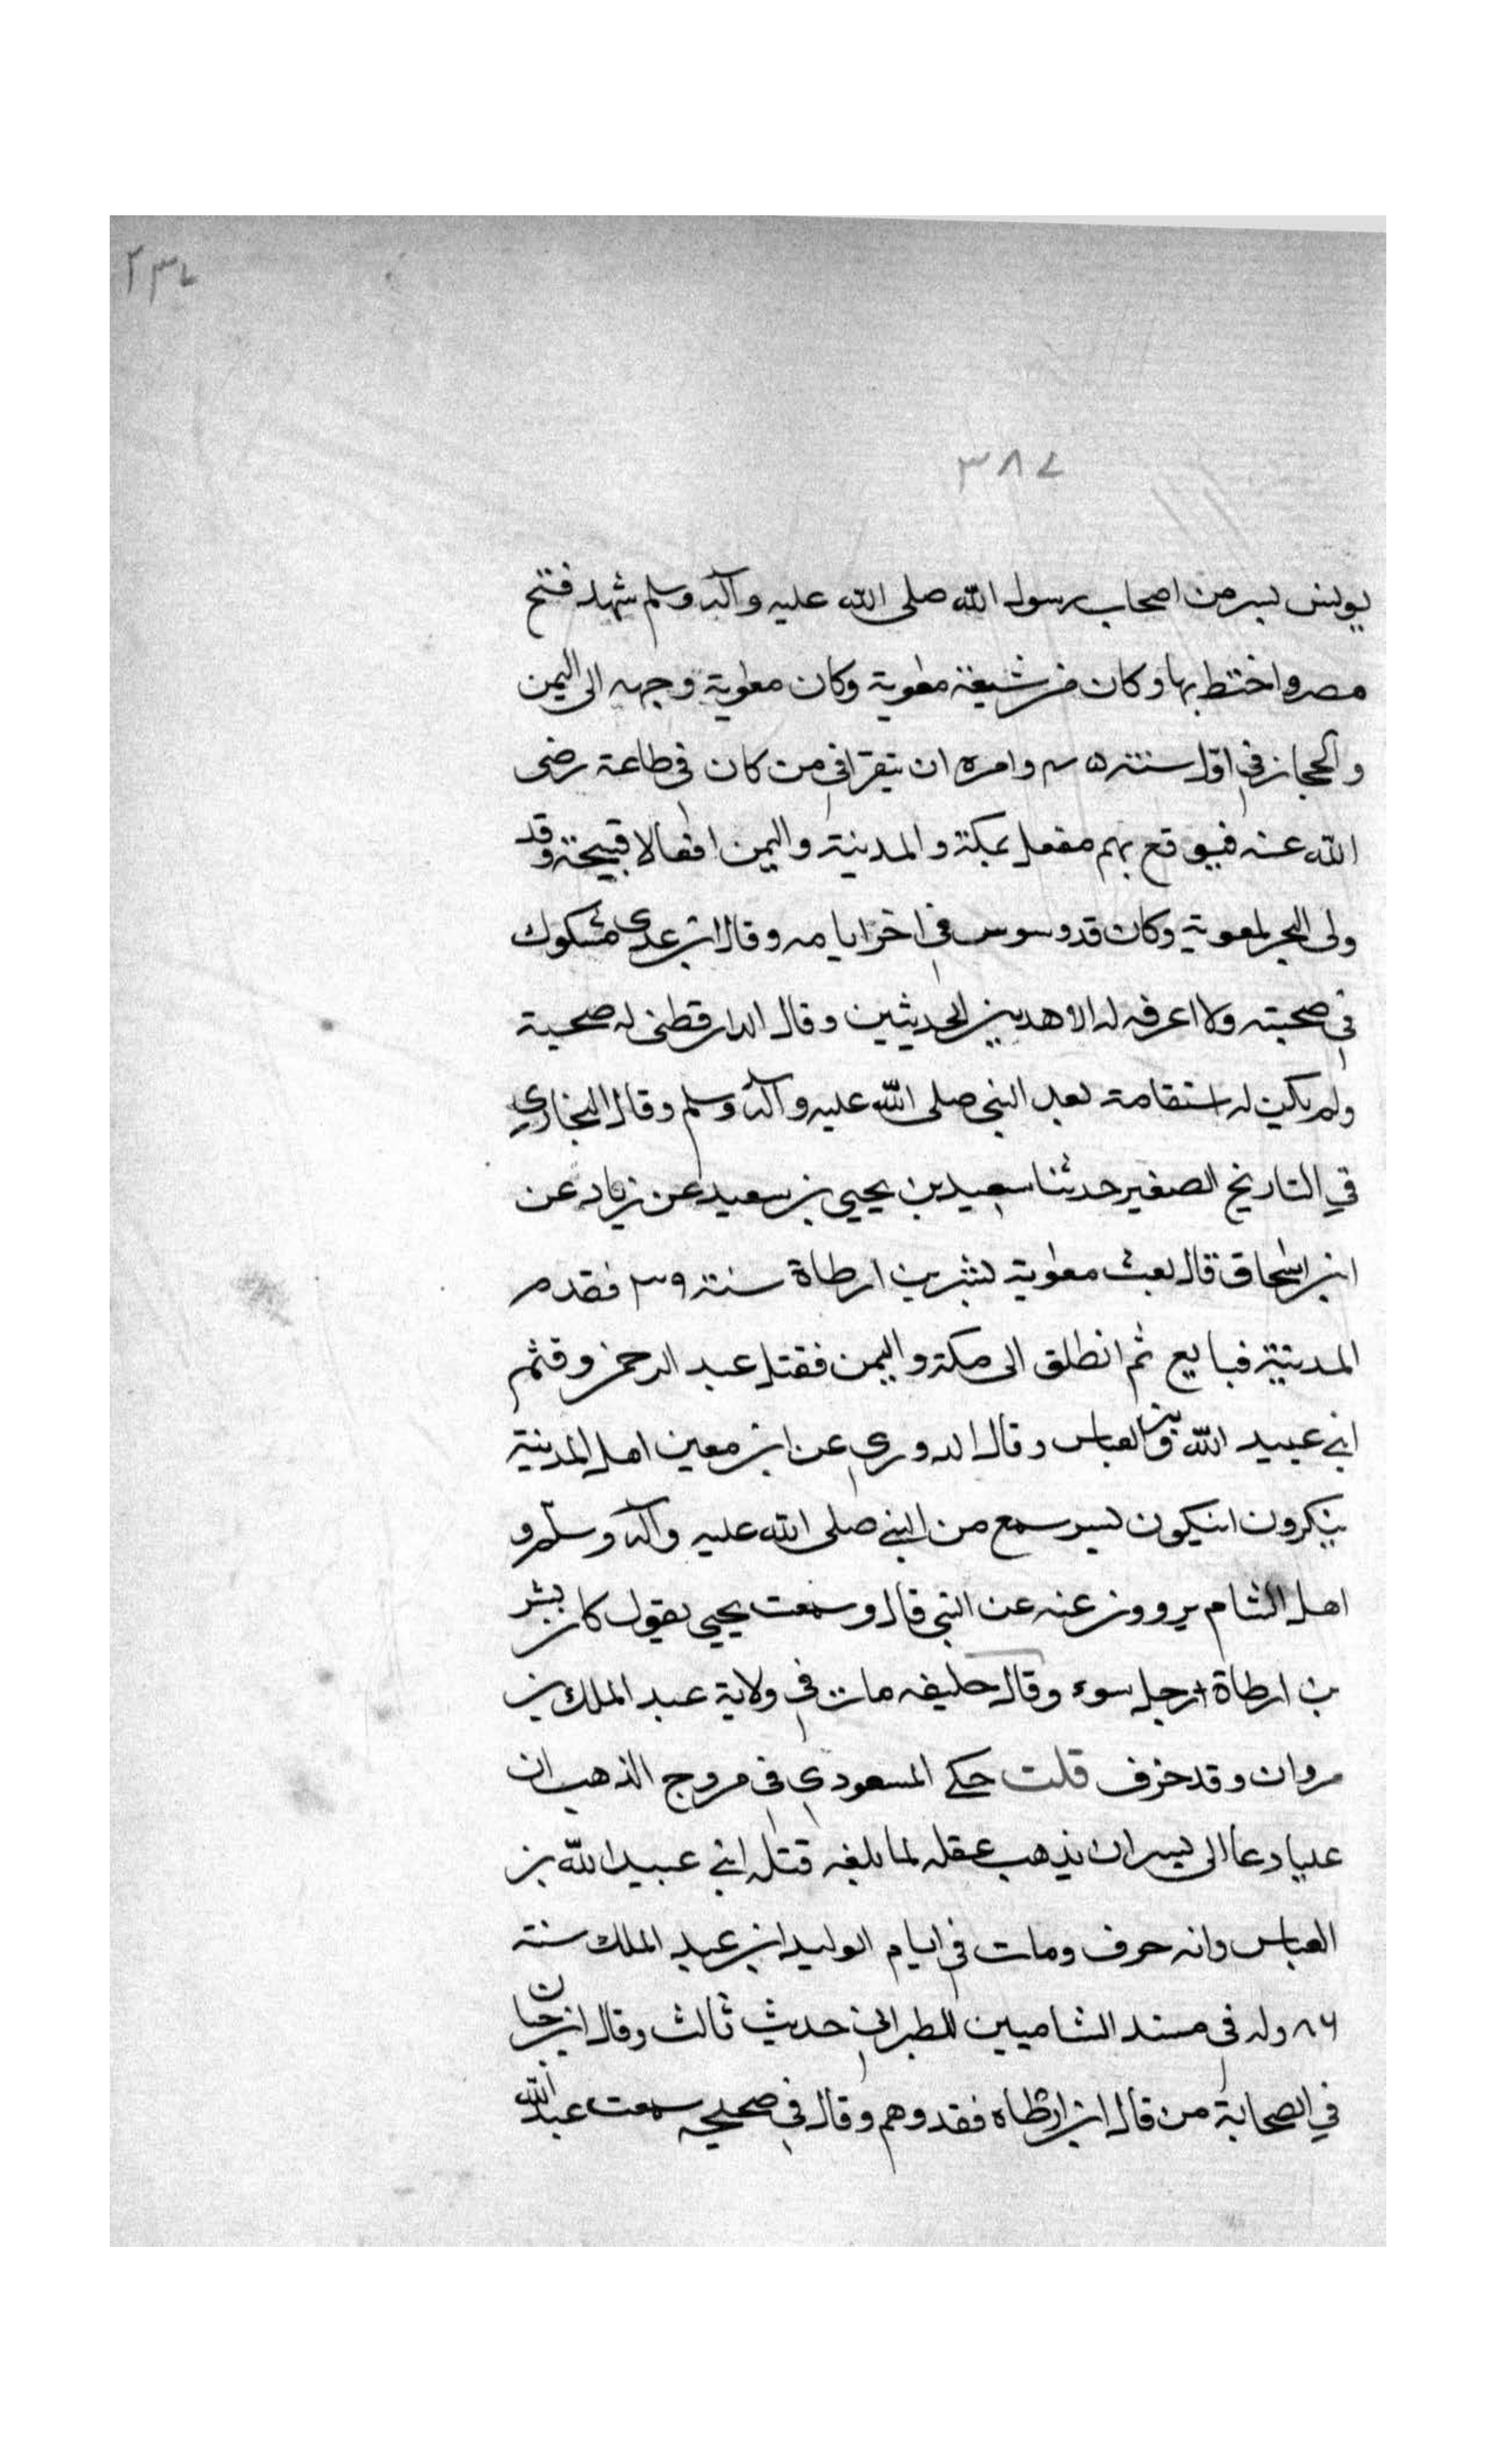 ٢٣٧
٣٨٧
يونس بسر من اصحاب رسول الله صلى الله عليه وآله وسلم شهد فتح
مصر واختط بها وكان من شيعة معوية وكان معوية وجهه الى اليمن
والحجاز في اول سنة ٤٥ وامره ان يتقرافي من كان في طاعة رضى
الله عنه فيوقع بهم مفعل بمكة والمدينة واليمن افعالا قبيحة وقد
ولى البحر لمعوية وكان قد وسوس في اخر ايامه وقال ابن عدى مشكوك
في صحبته ولا اعرفه له الا هدين الحديثين وقال الدارقطنى له صحبة
ولم يكن له استقامة بعد النبى صلى الله عليه وآله وسلم وقال البخارى
في التاريخ الصغير حدثنا سعيد بن يحيى بن سعيد عن زياد عن
ابن اسحاق قال بعث معوية بشر بن ارطاة سنة ٣٩ فقدم
المدينة فبايع ثم انطلق الى مكة واليمن فقتل عبد الرحمن وقثم
ابنى عبيد الله بن العباس وقال الدورى عن ابن معين اهل المدينة
ينكرون انيكون بسر سمع من النبى صلى الله عليه وآله وسلم و
اهل الشام يروون عنه عن النبى قال وسمعت يحيى يقول كان بشر
بن ارطاة رجل سوء وقال خليفه مات في ولاية عبد الملك بن
مروان وقد خرف قلت حكى المسعودى في مروج الذهب ان
عليا دعا الى بسر ان يذهب عقله لما بلغه قتله ابنى عبيد الله بن
العباس وانه خرف ومات في ايام الوليد ابن عبد الملك سنة
٨٦ وله في مسند الشاميين للطبرانى حديث ثالث وقال ابن حبان
في الصحابة من قال ابن ارطاه فقد وهم وقال في صحيحه سمعت عبد الله